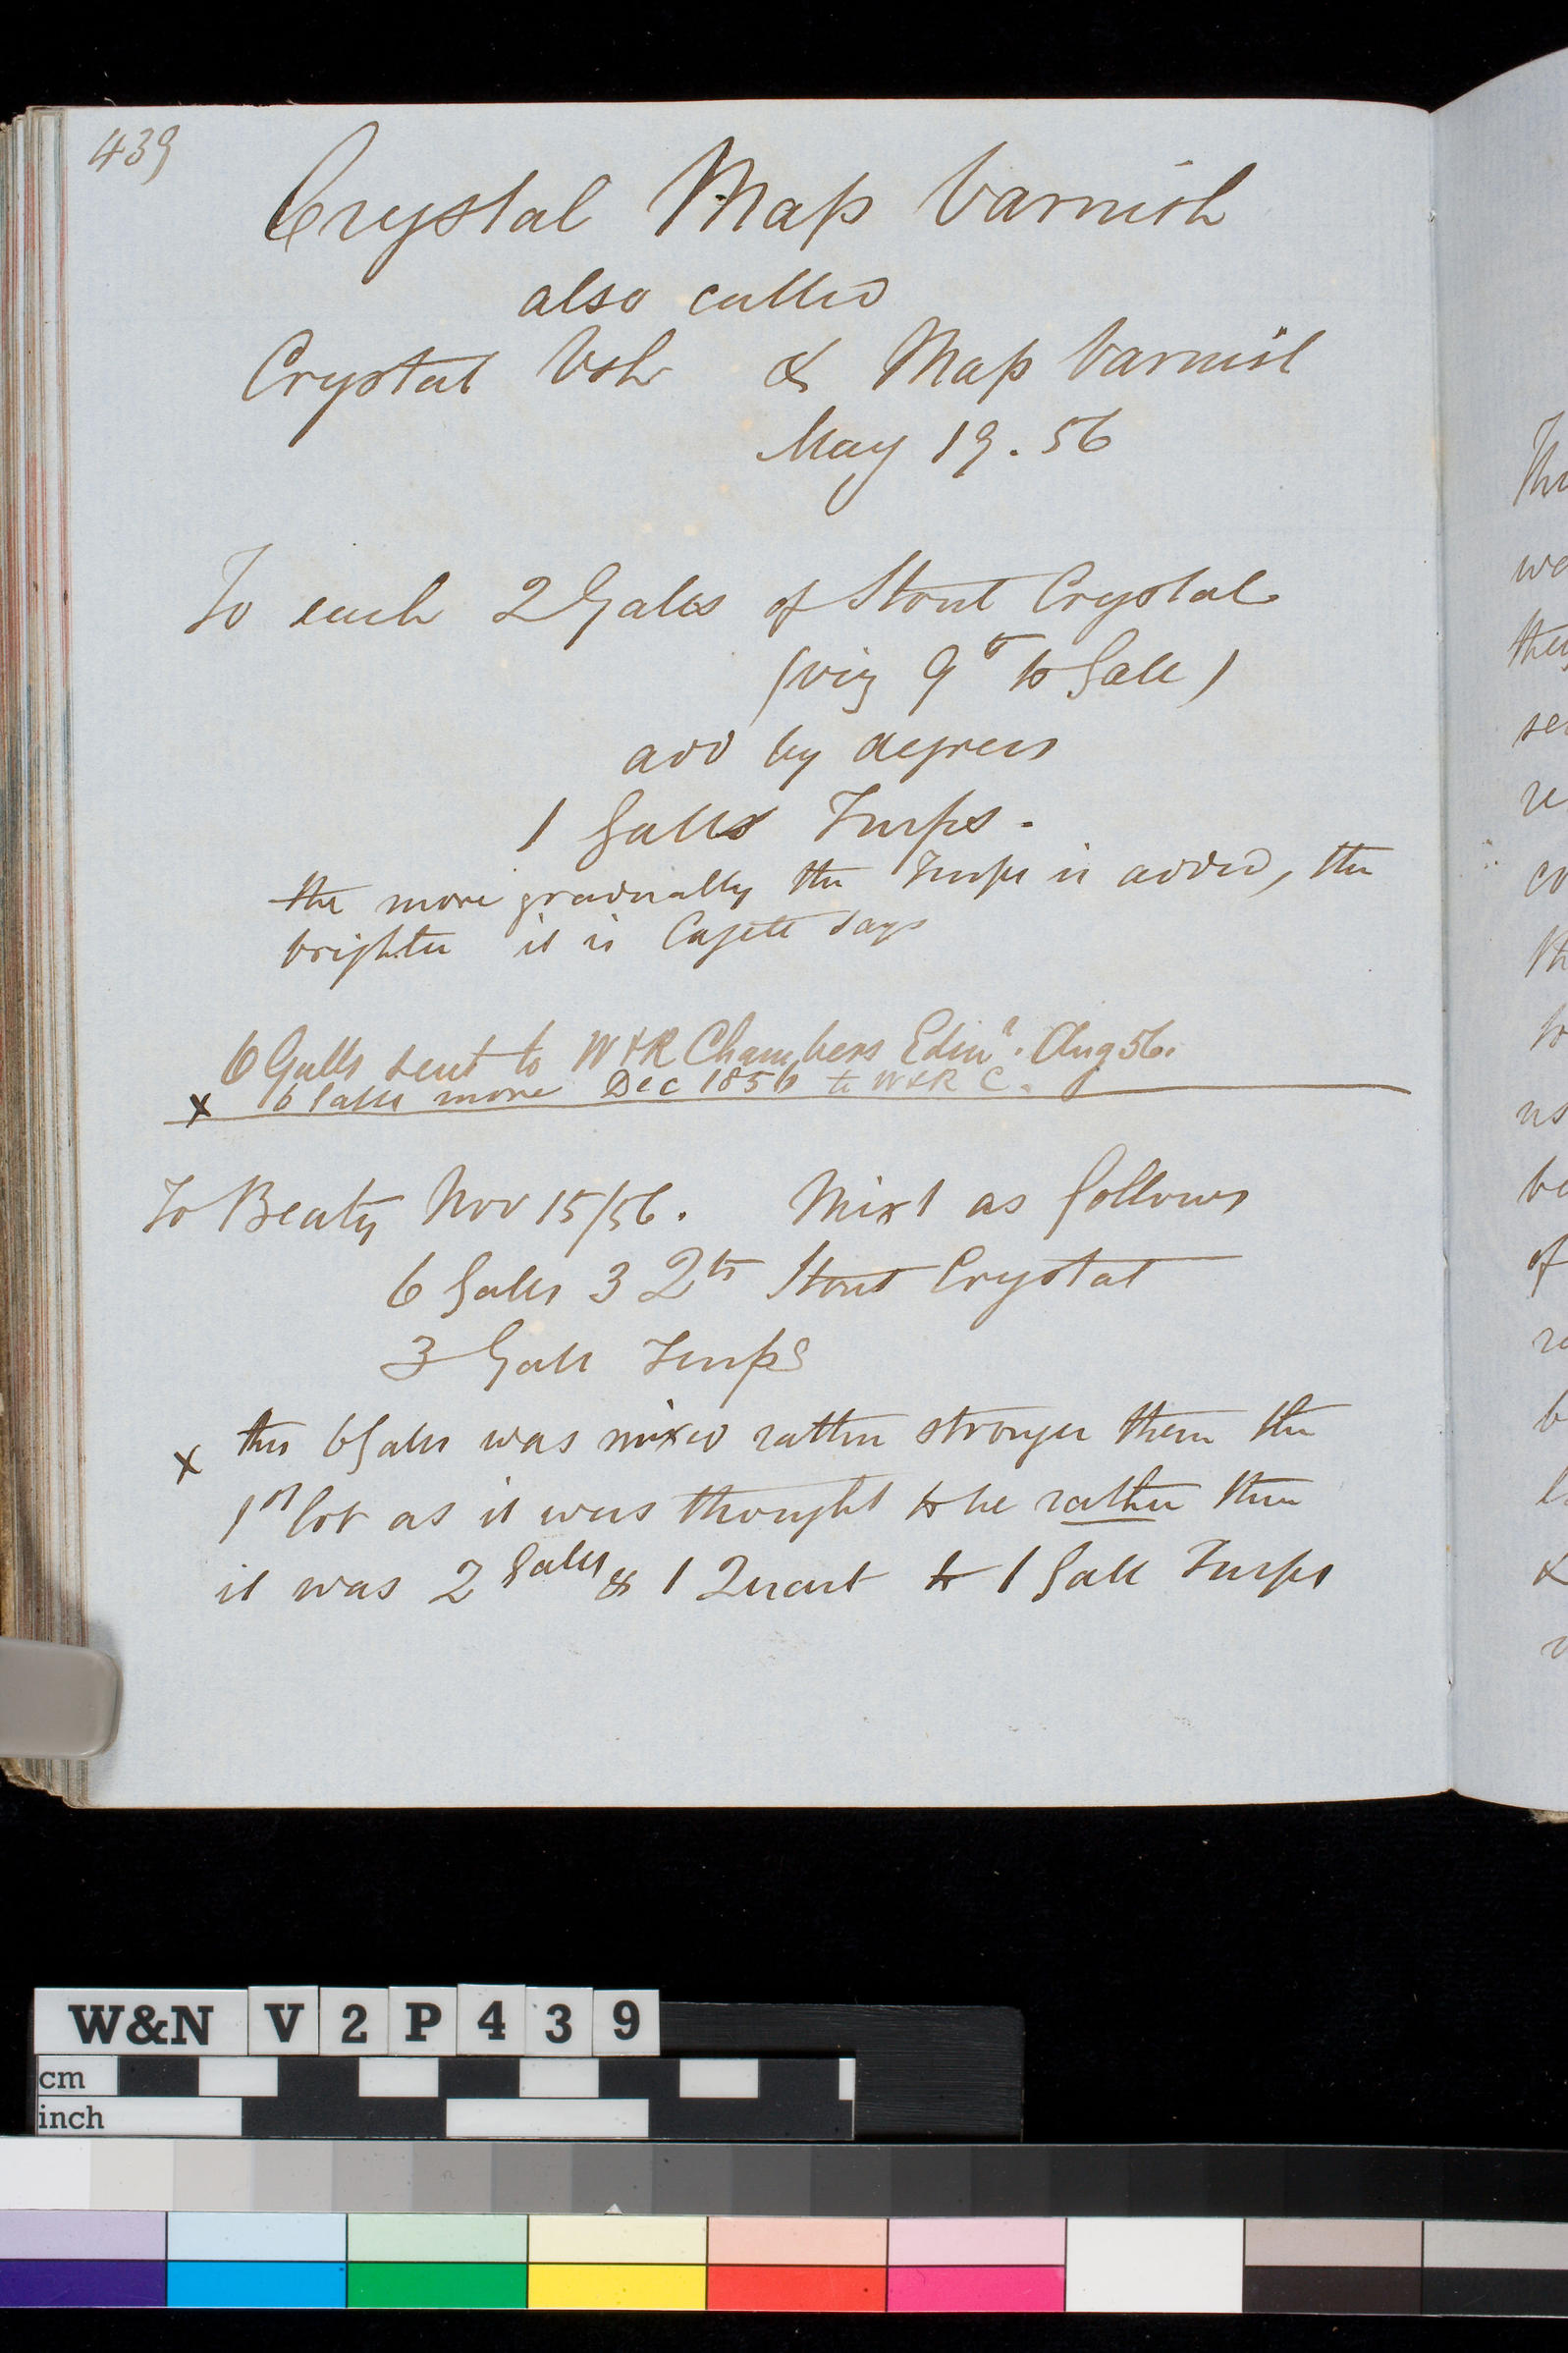 439
Crystal Map Varnish
also called
Crystal Vsh & Map Varnish
May 19. 56
To each 2 Galls of Stout Crystal
(viz 9 to Gall)
add by degrees
1 Galls Turps.
the more gradually the Turps is added, the
brighter it is says
6 Galls sent to W & R Chambers Edinr. Aug 56.
x 6 Galls more Dec 1856 to W & R C.
To Beaty Nov 15/56. Mixt as follows
6 Galls 3 Qts Stout Crystal
3 Galls Turps
x this 6 Galls was mixed rather stronger than the
1st lot as it was thought to be rather thin
it was 2 Galls & 1 Quart to 1 Gall Turps
Thi
wa
the
se
re
co
Th
to
us
be
of
ra
b
&
W&N V2P439
cm
inch